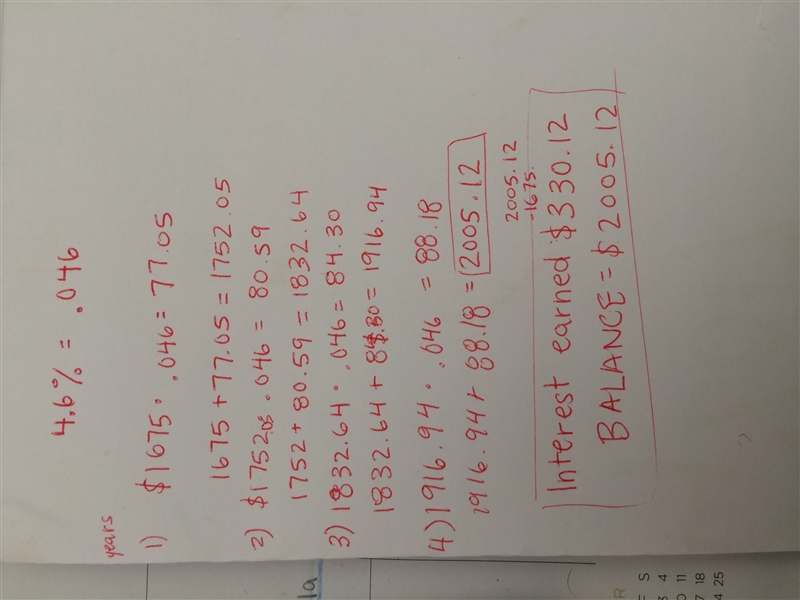 4.6% = .046
years
1) $1675 · .046 = 77.05
1675 + 77.05 = 1752.05
2) $1752.05 · .046 = 80.59
1752 + 80.59 = 1832.64
3) 1832.64 · .046 = 84.30
1832.64 + 84.30 = 1916.94
4) 1916.94 · .046 = 88.18
1916.94 + 88.18 = 2005.12
2005.12
-1675.
Interest earned $330.12
BALANCE = $2005.12
la
R
F S
3 4
10 11
17 18
24 25